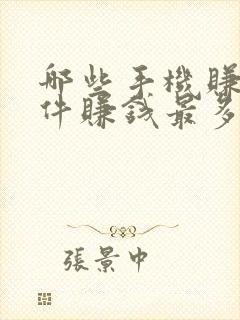 哪些手機賺
件賺錢最多
張景中